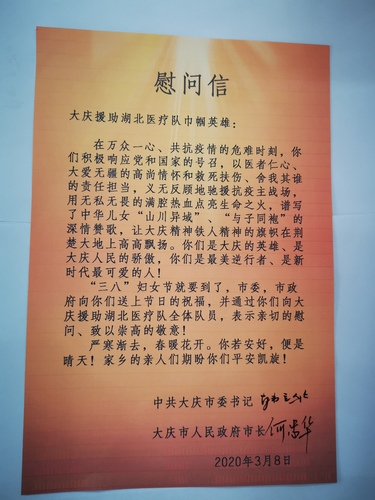 慰问信
大庆援助湖北医疗队巾帼英雄：
在万众一心、共抗疫情的危难时刻，你
们积极响应党和国家的号召，以医者仁心、
大爱无疆的高尚情怀和救死扶伤、舍我其谁
的责任担当，义无反顾地驰援抗疫主战场，
用无私无畏的满腔热血点亮生命之火，谱写
了中华儿女“山川异域”、“与子同袍”的
深情赞歌，让大庆精神铁人精神的旗帜在荆
楚大地上高高飘扬。你们是大庆的英雄、是
大庆人民的骄傲，你们是最美逆行者、是新
时代最可爱的人！
“三八”妇女节就要到了，市委、市政
府向你们送上节日的祝福，并通过你们向大
庆援助湖北医疗队全体队员，表示亲切的慰
问、致以崇高的敬意！
严寒渐去，春暖花开。你若安好，便是
晴天！家乡的亲人们期盼你们平安凯旋！
中共大庆市委书记
大庆市人民政府市长 何忠华
2020年3月8日